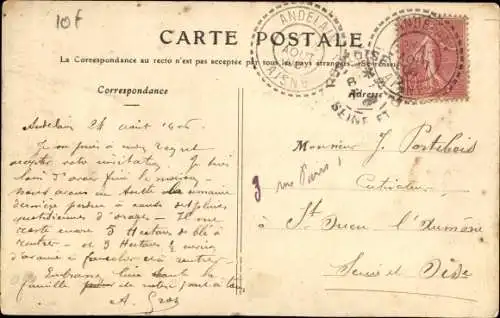 10f
CARTE POSTALE
La Correspondance au recto n'est pas acceptée par tous les pays étrangers.
Correspondance
Adresse
ANDELAIN
AOUT
AISNE
SEINE ET
Andelain 24 août 1906
Je ne puis à mon regret
accepter votre invitation. Je suis
loin d'avoir fini la moisson
nous avons eu toute la semaine
dernière perdue à cause des pluies
quotidiennes d'orages - Il me
reste encore 5 Hectares de blé à
rentrer - et 3 Hectares ½
d'avoine à faucher et à rentrer
Embrassez bien toute la
famille de notre part à tous
A. Gros
Monsieur J. Portebois
Cultivateur
3 rue Paris
l'Aumône
Seine et Oise